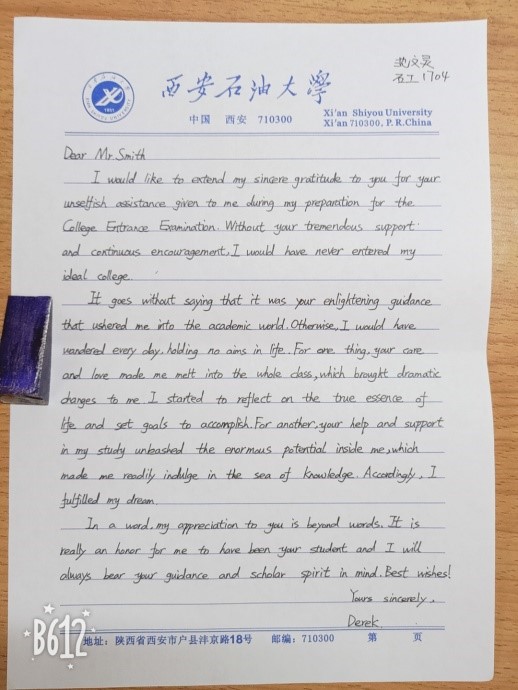 沈文昊
石工1704
西安石油大學
中国 西安 710300
Xi'an Shiyou University
Xi'an 710300, P.R.China
Dear Mr. Smith
I would like to extend my sincere gratitude to you for your
unselfish assistance given to me during my preparation for the
College Entrance Examination. Without your tremendous support
and continuous encouragement, I would have never entered my
ideal college.
It goes without saying that it was your enlightening guidance
that ushered me into the academic world. Otherwise, I would have
wandered every day, holding no aims in life. For one thing, your care
and love made me melt into the whole class, which brought dramatic
changes to me. I started to reflect on the true essence of
life and set goals to accomplish. For another, your help and support
in my study unleashed the enormous potential inside me, which
made me readily indulge in the sea of knowledge. Accordingly, I
fulfilled my dream.
In a word, my appreciation to you is beyond words. It is
really an honor for me to have been your student and I will
always bear your guidance and scholar spirit in mind. Best wishes!
Yours sincerely,
Derek.
地址：陕西省西安市户县沣京路18号 邮编：710300 第 页
B612